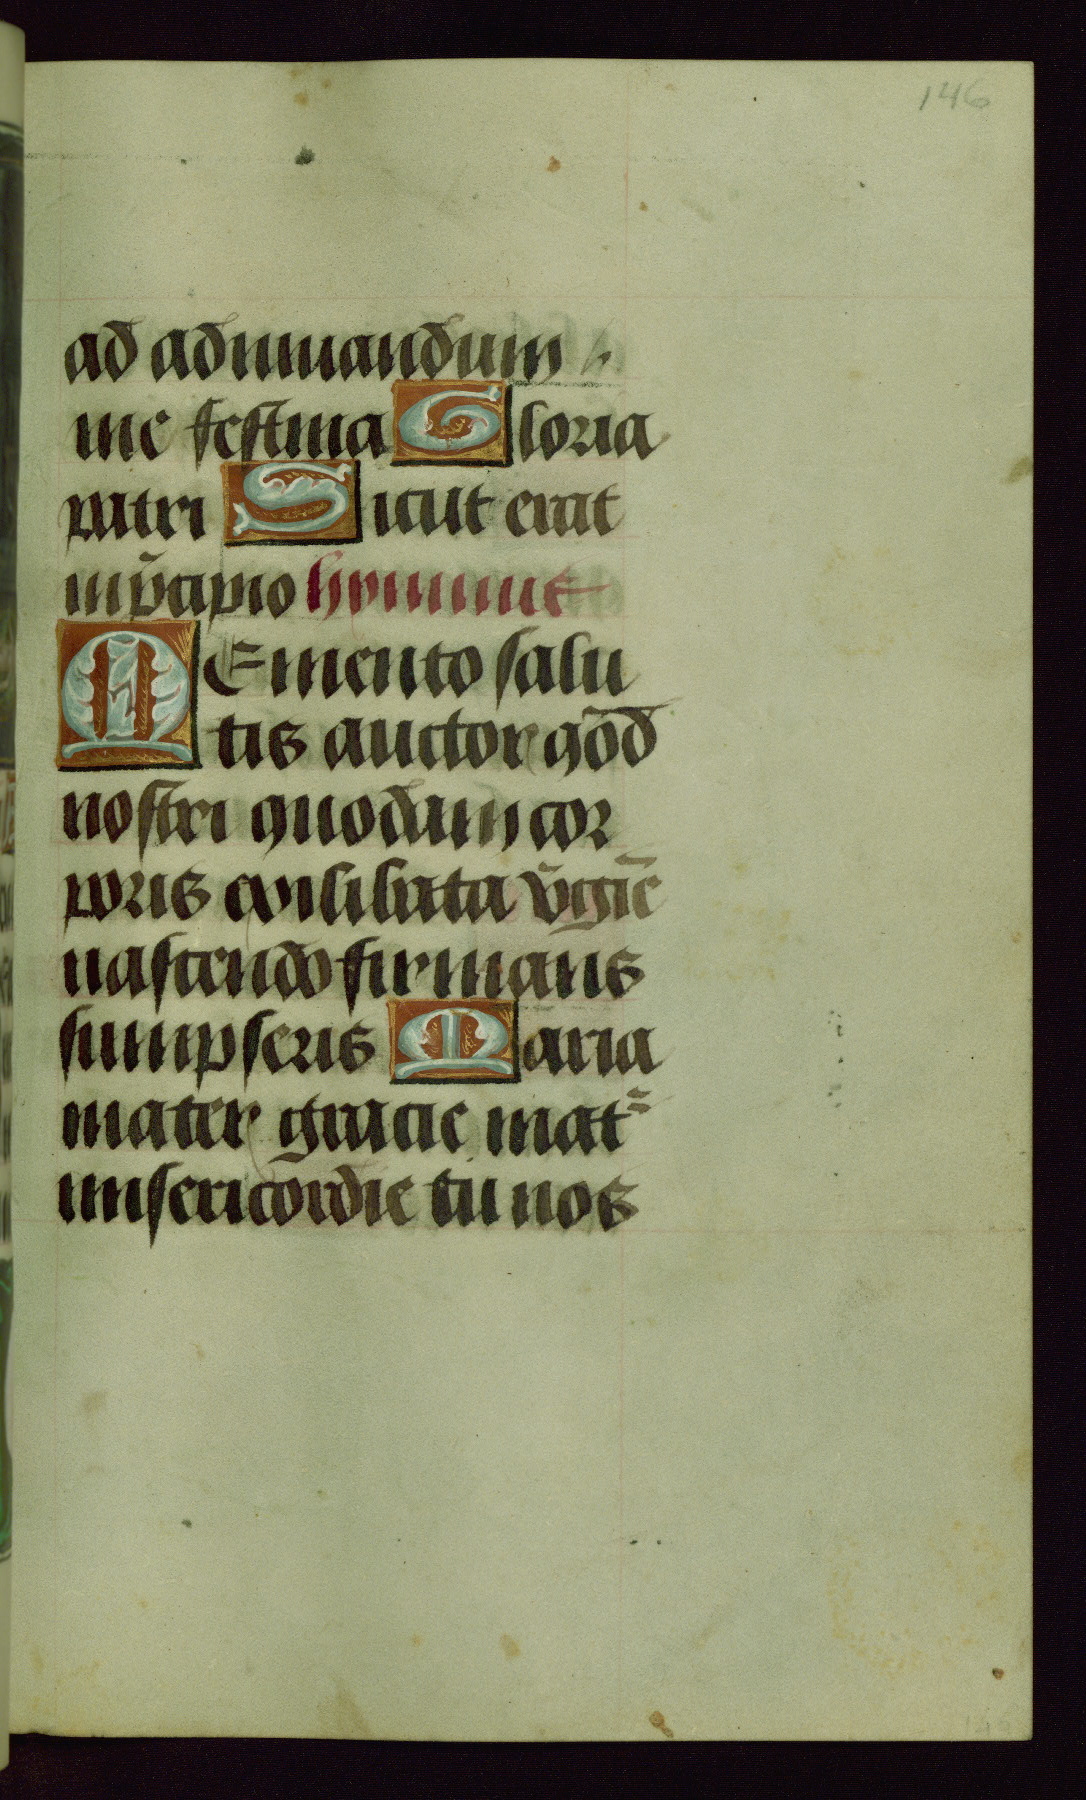 146
ad adiuuandum
me festina Gloria
patri Sicut erat
in p̄ncipio hymnus
MEmento salu
tis auctor q̄od
nostri quodam cor
poris ex illibata v̄gīe
nascendo firmans
sumpseris Maria
mater gracie mat̄
misericordie tu nos